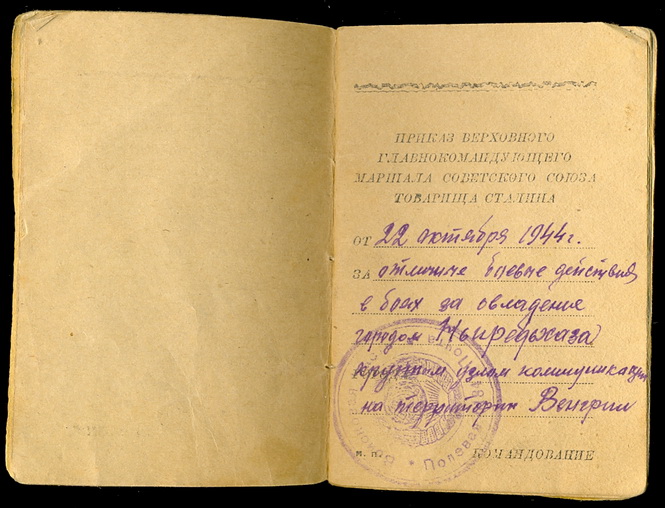 ПРИКАЗ ВЕРХОВНОГО
ГЛАВНОКОМАНДУЮЩЕГО
МАРШАЛА СОВЕТСКОГО СОЮЗА
ТОВАРИЩА СТАЛИНА
ОТ 22 октября 1944 г.
ЗА отличные боевые действия
в боях за овладение
городом Ньиредьхаза
крупным узлом коммуникаций
на территории Венгрии
Полевая Почта
м. п. КОМАНДОВАНИЕ